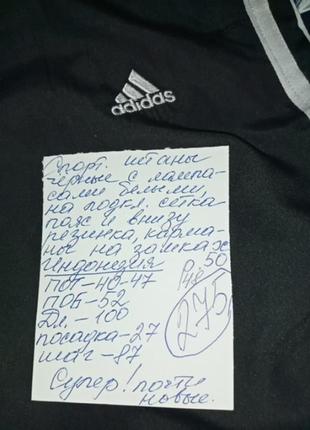 adidas
Спорт. штаны
черные с лампа-
сами белыми,
на подкл. сетка
пояс и внизу
резинка, карма-
ны на замках
Индонезия
Р 48-50
ПОТ-40-47
ПОБ-52
Дл.-100
посадка-27
шаг-87
275
Супер! почти
новые.